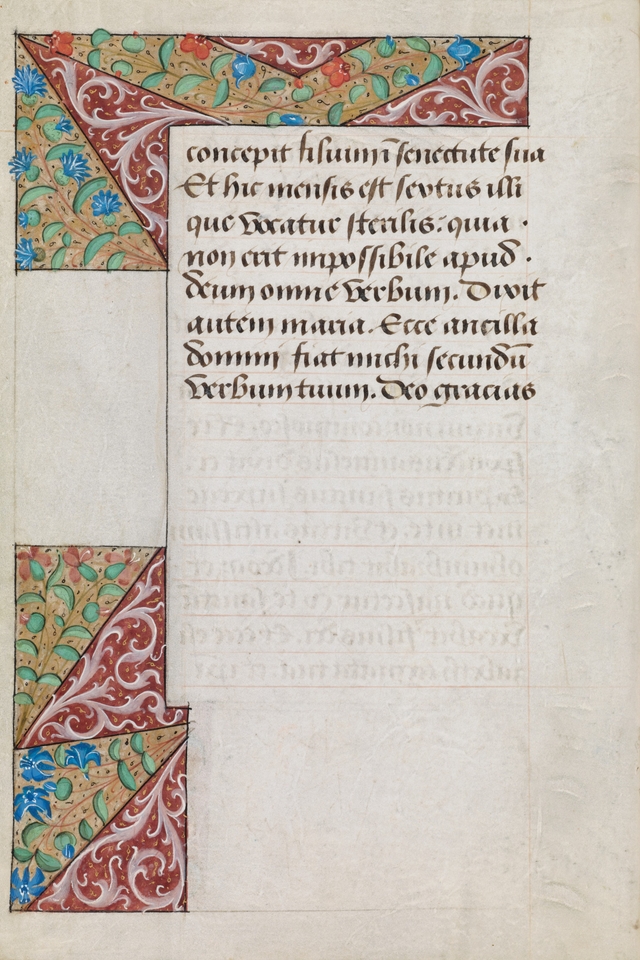 concepit filiumī senectute sua
Et hic mensis est sextus illi
que vocatur sterilis: quia ·
non erit impossibile apud ·
deum omne verbum. Dixit
autem maria. Ecce ancilla
domini fiat michi secundū
verbum tuum. Deo gracias